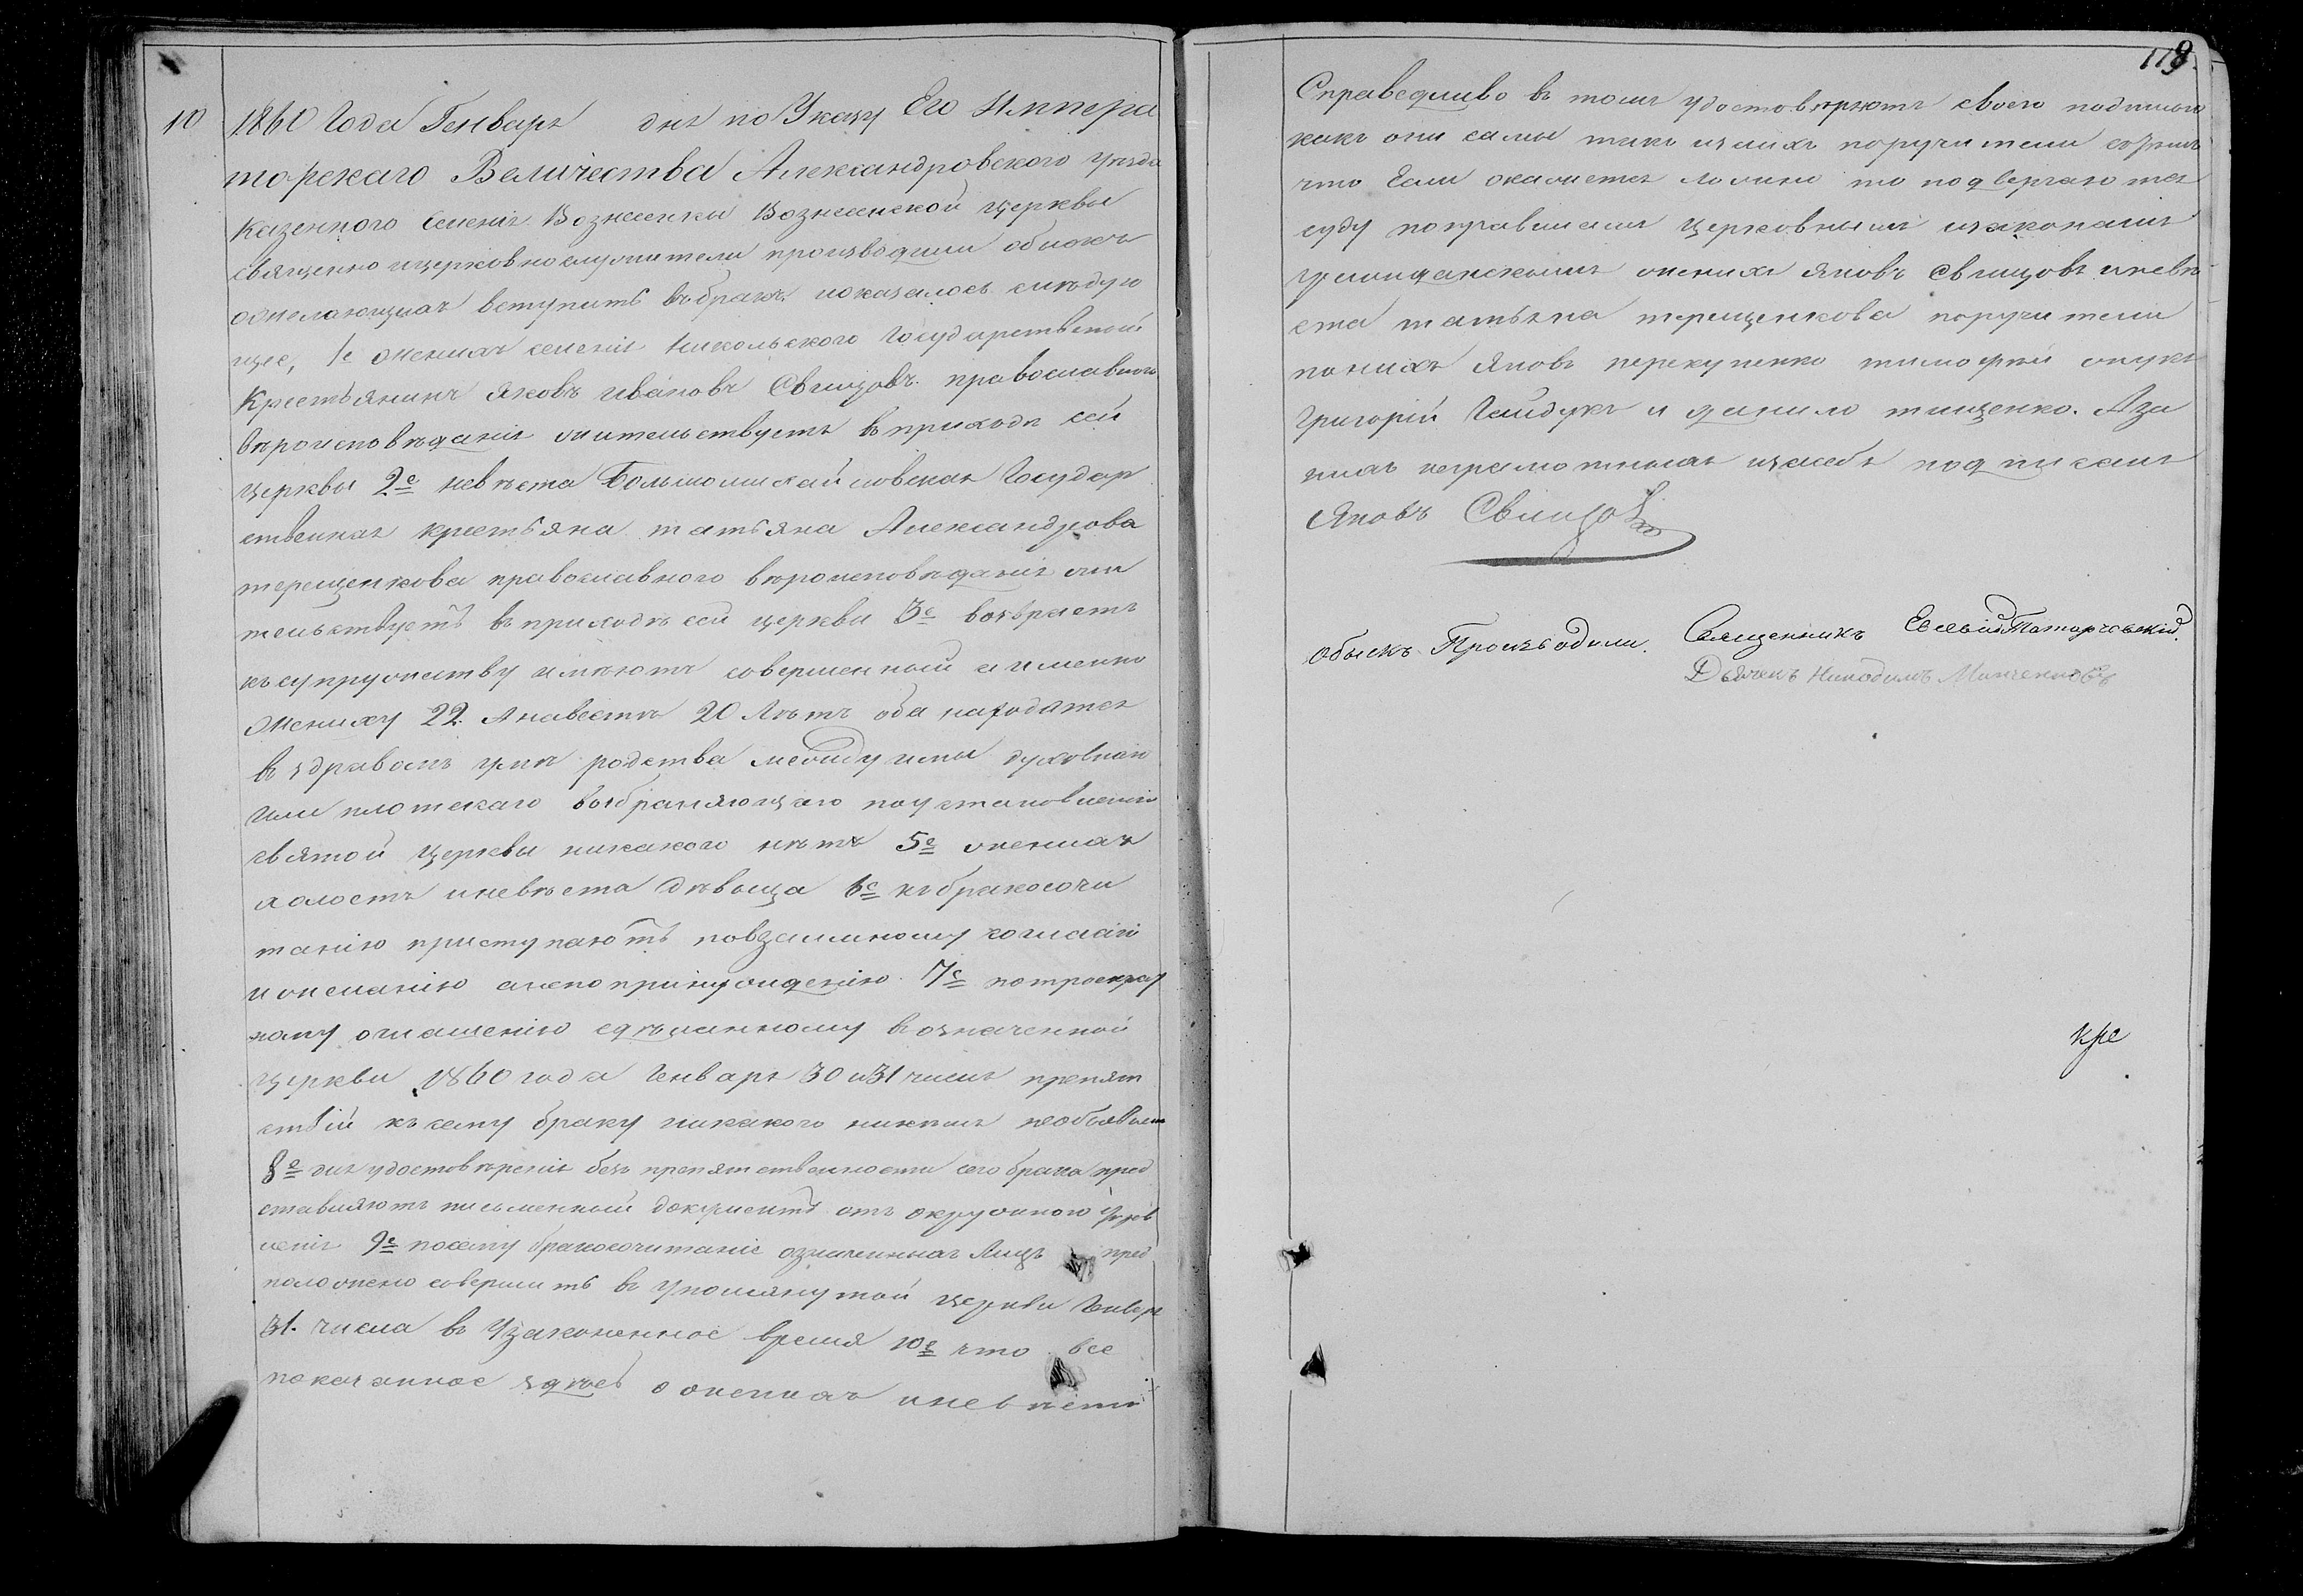 119
10
1860 Года Генваря дня по Указу Его Импера
торскаго Величества Александровского уезда
казенного селенія Вознесенки Вознесенской церквы
священно ицерковнослужители производили обыскъ
ожелающихъ вступить въбракъ. иоказалось слѣдую
щее, 1е женихъ селенія Никольского Государственной
Крестьянинъ Яковъ Ивановъ Свищовъ. православного
вѣроисповѣданія жительствуетъ въприходѣ сей
церквы 2е невѣста Большомихайловская Государ
ственная крестьяна татьяна Александрова
терещенкова православного вѣроисповѣданія жи
тельствуетъ въприходѣ сей церкви 3е возврастъ
къ супружиству имѣютъ совершенный а именно
Жениху 22. Анавестѣ 20 Лѣтъ оба находятся
въ здравомъ умѣ родства между имы духовнаго
или плотскаго возбраняющаго поустановленію
святой церкви никакого нѣтъ 5е женихъ
холостъ иневѣста дѣвыца 6е къбракосочи
танію приступаютъ повзаимному согласію
ижеланію анепопринуждению. 7е потроекрат
ному оглашенію сдѣланному въозначенной
Церкви 1860 года Генваря 30 и 31 числа препят
ствій къ сему браку никакого никтомъ необъявлено
8е для удостовѣренія безъ препятственности сего брака пред
ставляютъ письменный документъ отъ окружного управ
ленія 9е посему бракосочитаніе означенныхъ Лицъ пред
положено совершить въ Упомянутой церкви Генваря
31. числа въ Узаконенное время 10е что все
показанное здѣсь оженихѣ иневѣсти
Справедливо въ томъ удостовѣряютъ своего подписью
какъ они самы такъ ипонихъ поручители стѣмъ
что Если окажется Ложно то подвергаются
суду поправиламъ церковнымъ изаконамъ
гражданскимъ женихъ Яковъ Свищовъ иневѣ
ста татьяна терещенкова поручители
понихъ Яковъ перекупенко тимофѣй жукъ
Григорій Гайдукъ и данило тищенко. Аза
нихъ неграмотныхъ изасебя подписался
Яковъ Свищовъ
Обыскъ Производили. Священникъ Евсевій Татарчевскій.
Дьячекъ Никодимъ Минченковъ
кре